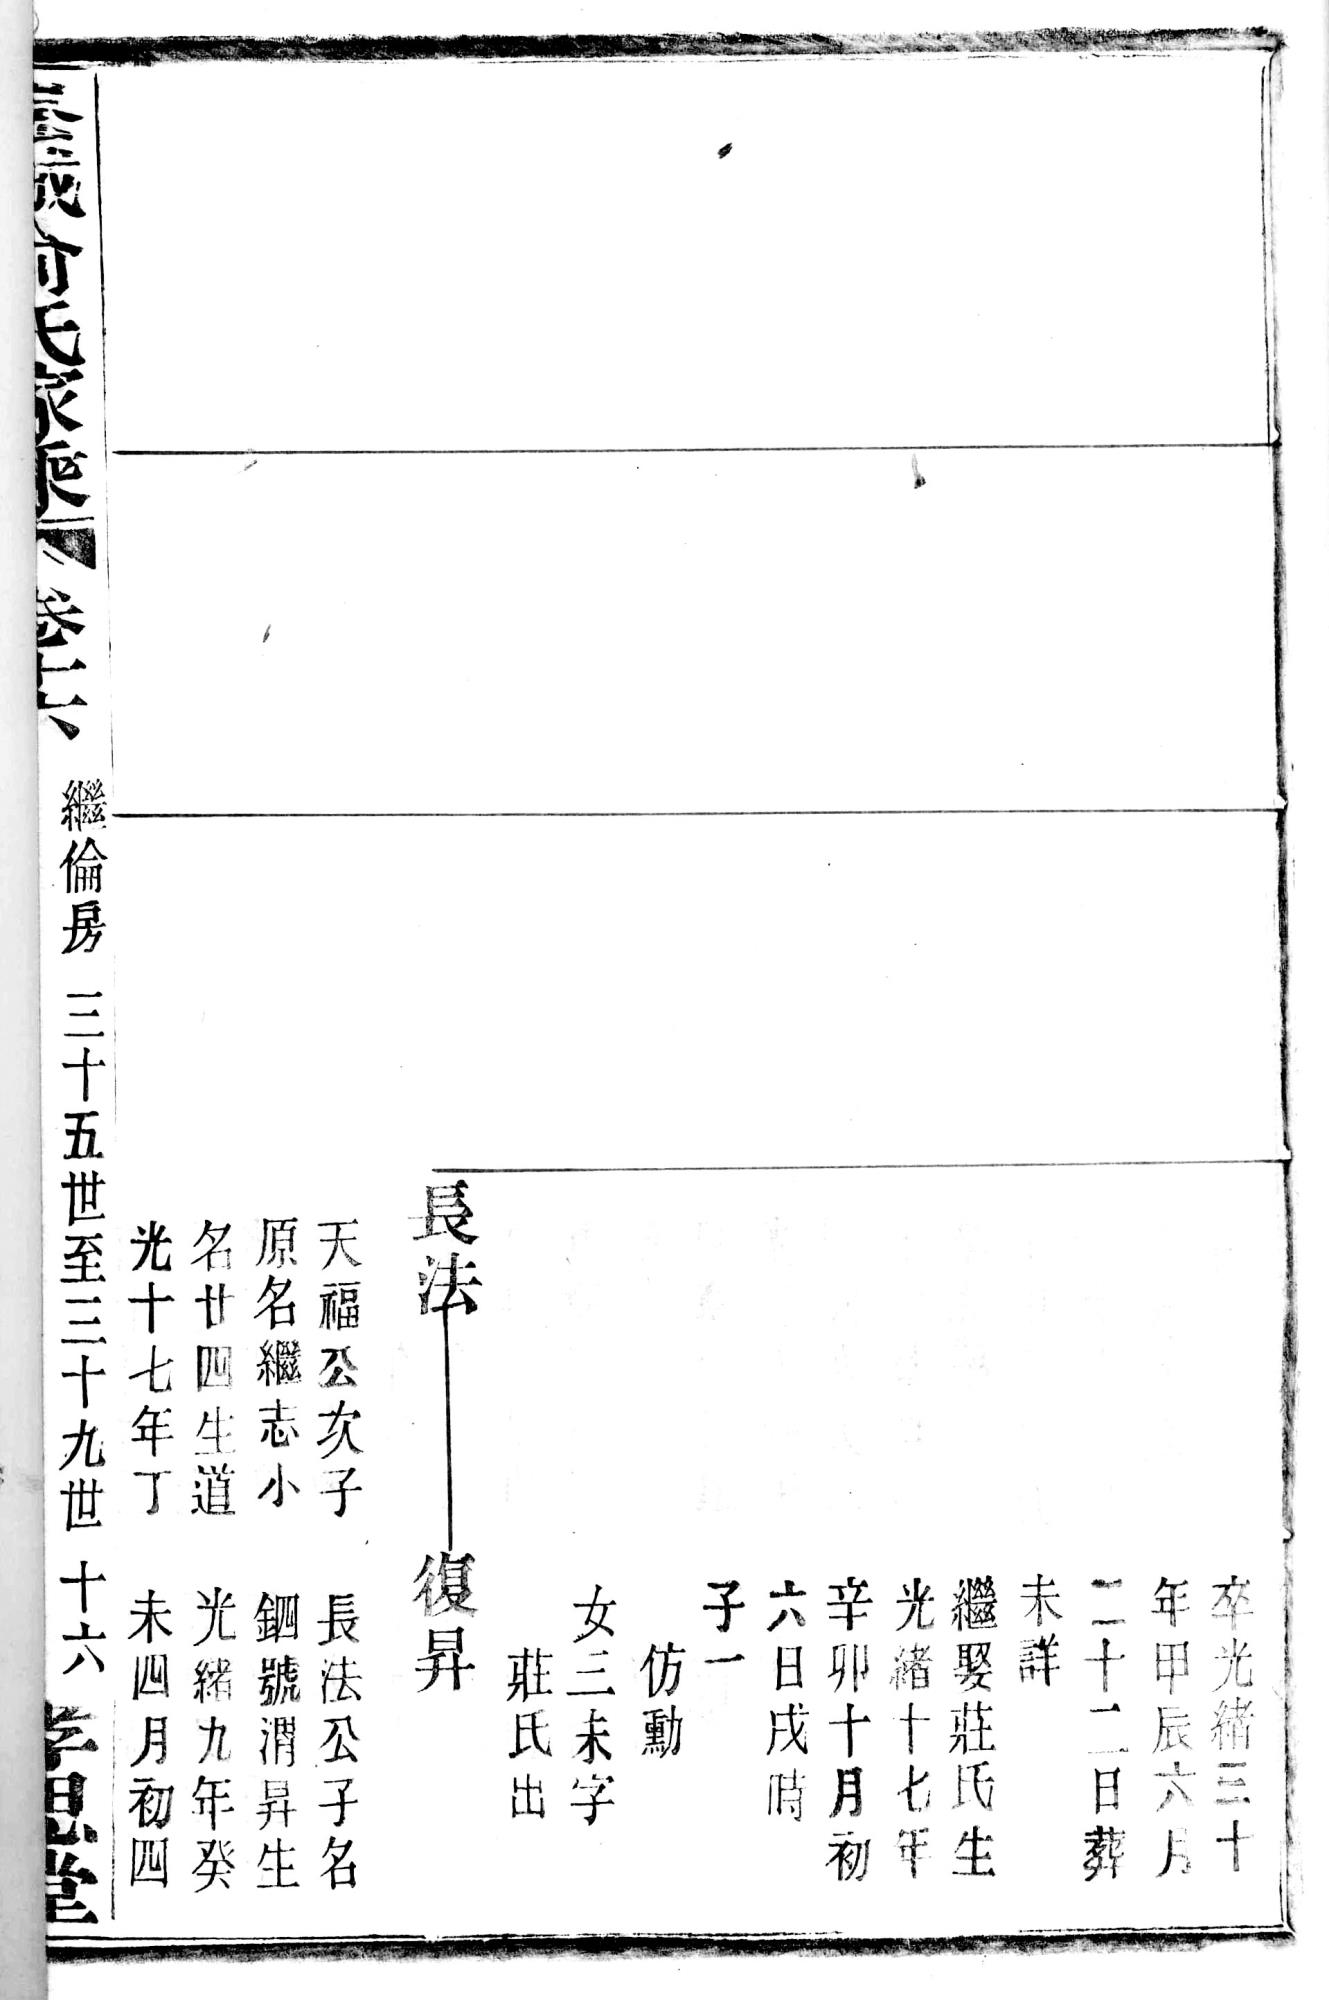 卒光緒三十
年甲辰六月
二十二日葬
未詳
繼娶莊氏生
光緒十七年
辛卯十月初
六日戌時
子一
仿勳
女三未字
莊氏出
長法
復昇
天福公次子
原名繼志小
名廿四生道
光十七年丁
長法公子名
號渭昇生
光緒九年癸
未四月初四
氏家乘
卷十六
繼倫房
三十五世至三十九世
十六
孝思堂